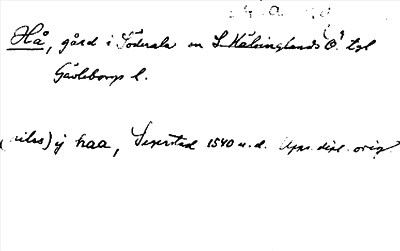 Hå, gård i Söderala sn S Hälsinglands Ö tgl
Gävleborgs l.
(nils) ij haa, Segersted 1540 u.d. Ups. dipl. orig